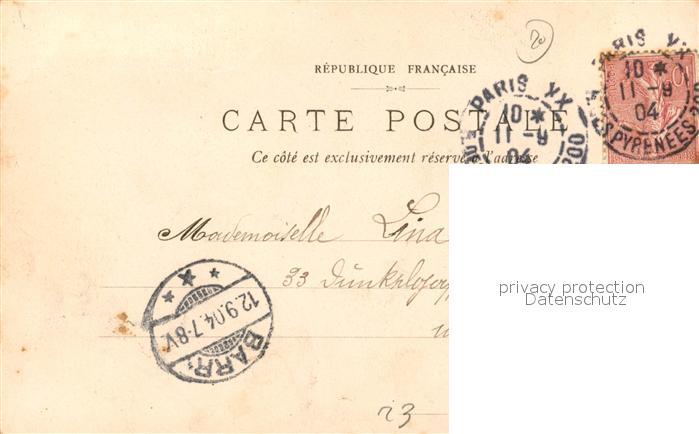 20
RÉPUBLIQUE FRANÇAISE
CARTE POSTALE
Ce côté est exclusivement réservé à l'adresse
PARIS XX
10 *
11 - 9
04
PARIS XX
10 *
11 - 9
04
PYRENEES
Mademoiselle Lina
33
privacy protection
Datenschutz
12.9.04.7-8V.
BARR
23